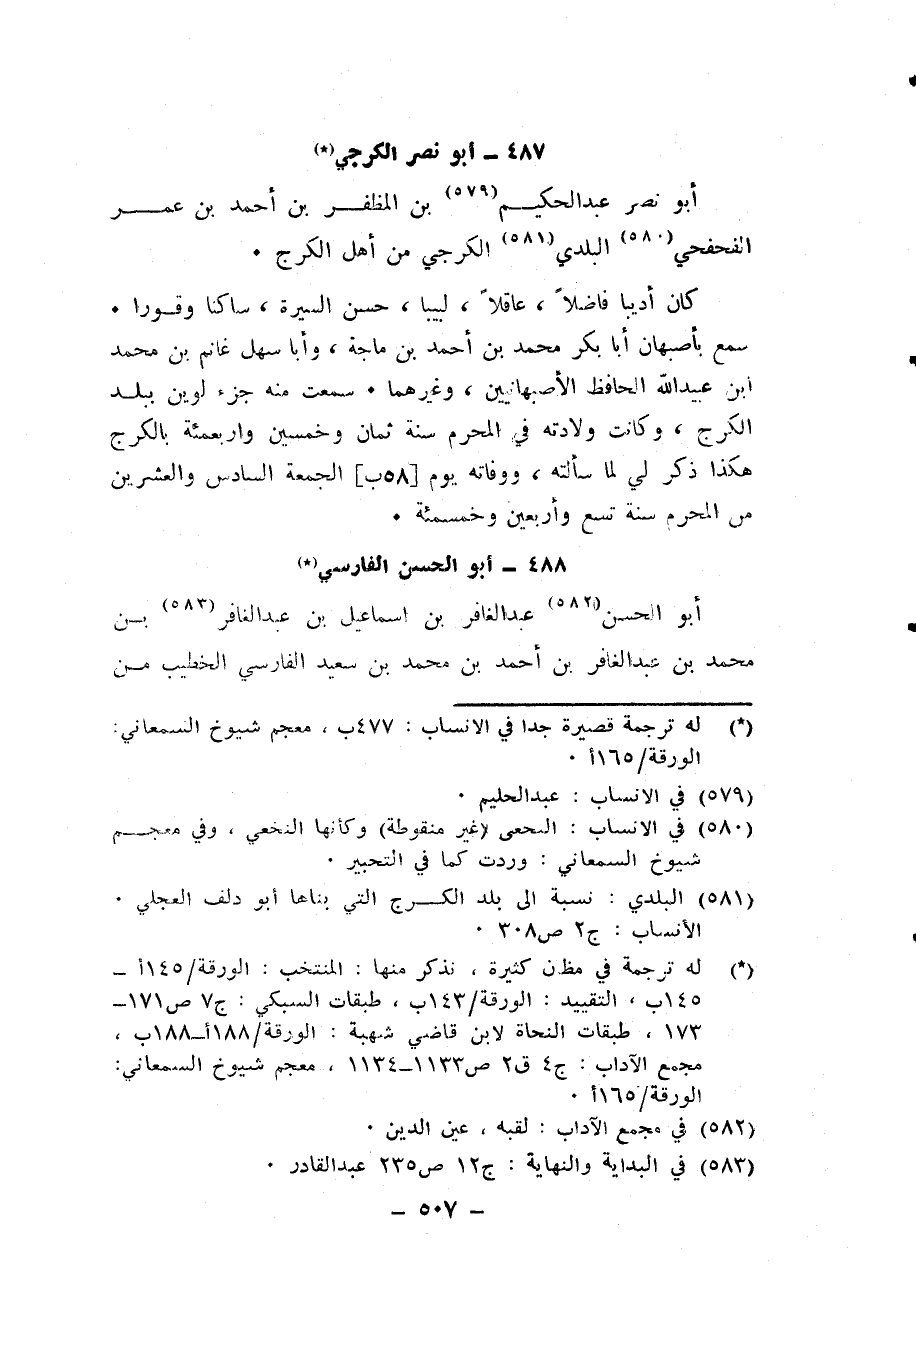 ٤٨٧ ــ أبو نصر الكرجي(*)
أبو نصر عبدالحكيـــم(٥٧٩) بن المظفـــر بن أحمد بن عمـــر
الفحفحي(٥٨٠) البلدي(٥٨١) الكرجي من أهل الكرج ٠
كان أديبا فاضلاً ، عاقلاً ، لبيبا ، حسن السيرة ، ساكنا وقـورا ٠
سمع بأصبهان أبا بكر محمد بن أحمد بن ماجة ، وأبا سهل غانم بن محمد
ابن عبيدالله الحافظ الأصبهانيين ، وغيرهما ٠ سمعت منه جزء لوين ببلـد
الكرج ، وكانت ولادته في المحرم سنة ثمان وخمسين واربعمئة بالكرج
هكذا ذكر لي لما سألته ، ووفاته يوم [٥٨ب] الجمعة السادس والعشرين
من المحرم سنة تسع وأربعين وخمسمئة ٠
٤٨٨ ــ أبو الحسن الفارسي(*)
أبو الحسن(٥٨٢) عبدالغافر بن اسماعيل بن عبدالغافر(٥٨٣) بـن
محمد بن عبدالغافر بن أحمد بن محمد بن سعيد الفارسي الخطيب مـن
(*) له ترجمة قصيرة جدا في الانساب : ٤٧٧ب ، معجم شيوخ السمعاني:
الورقة/١٦٥أ ٠
(٥٧٩) في الانساب : عبدالحليم ٠
(٥٨٠) في الانساب : النحعى (غير منقوطة) وكأنها النخعي ، وفي معجـــم
شيوخ السمعاني : وردت كما في التحبير ٠
(٥٨١) البلدي : نسبة الى بلد الكـــرج التي بناها أبو دلف العجلي ٠
الأنساب : ج٢ ص٣٠٨ ٠
(*) له ترجمة في مظن كثيرة ، نذكر منها : المنتخب : الورقة/١٤٥أ ــ
١٤٥ب ، التقييد : الورقة/١٤٣ب ، طبقات السبكي : ج٧ ص١٧١ــ
١٧٣ ، طبقات النحاة لابن قاضي شهبة : الورقة/١٨٨أــ١٨٨ب ،
مجمع الآداب : ج٤ ق٢ ص١١٣٣ــ١١٣٤ ، معجم شيوخ السمعاني:
الورقة/١٦٥أ ٠
(٥٨٢) في مجمع الآداب : لقبه ، عين الدين ٠
(٥٨٣) في البداية والنهاية : ج١٢ ص٢٣٥ عبدالقادر ٠
ــ ٥٠٧ ــ